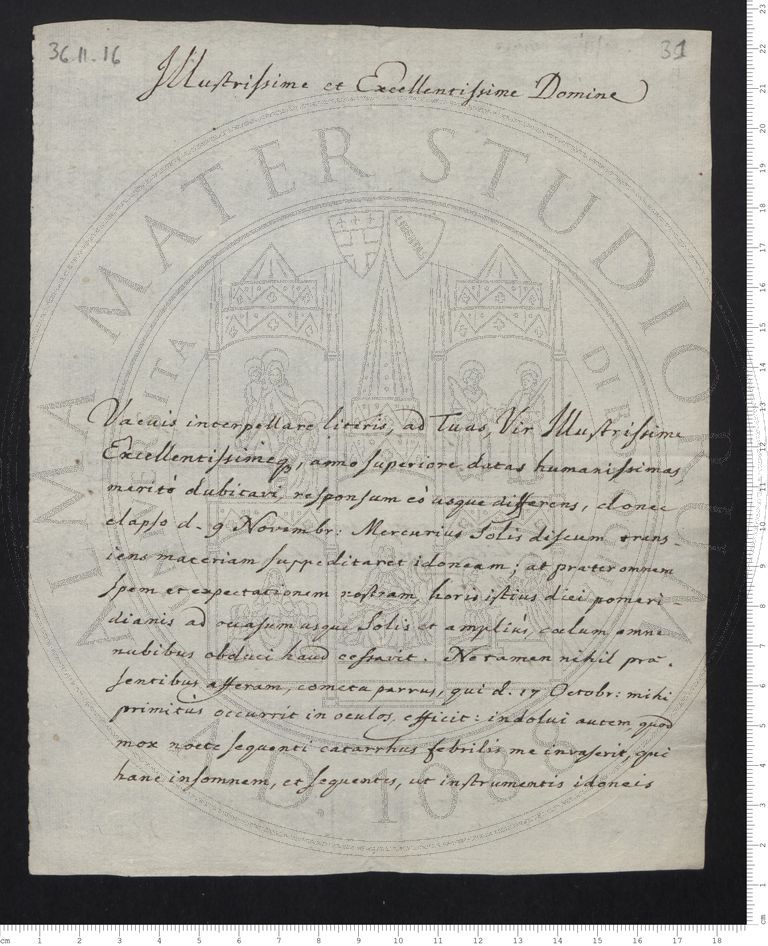 36.11.16
31
Illustrissime et Excellentissime Domine
Vacuis interpellare literis, ad Tuas, Vir Illustrissime
Excellentissimeq, anno superiore datas humanissimas,
merito dubitavi, responsum eo usque differens, donec
elapso d. 9 Novembr: Mercurius Solis discum trans-
iens materiam suppeditaret idoneam; at præter omnem
spem et expectationem nostram, horis istius diei pomeri-
dianis ad occasum usque Solis et amplius, cœlum omne
nubibus obduci haud cessavit. Ne tamen nihil præ-
sentibus afferam, cometa parvus, qui d. 17 Octobr: mihi
primitus occurrit in oculos, efficit: indolui autem, quod
mox nocte sequenti catarrhus febrilis me invaserit, qui
hanc insomnem, et sequentes, ut instrumentis idoneis
ALMA MATER STUDIORUM
A.D. 1088
LIBERTAS